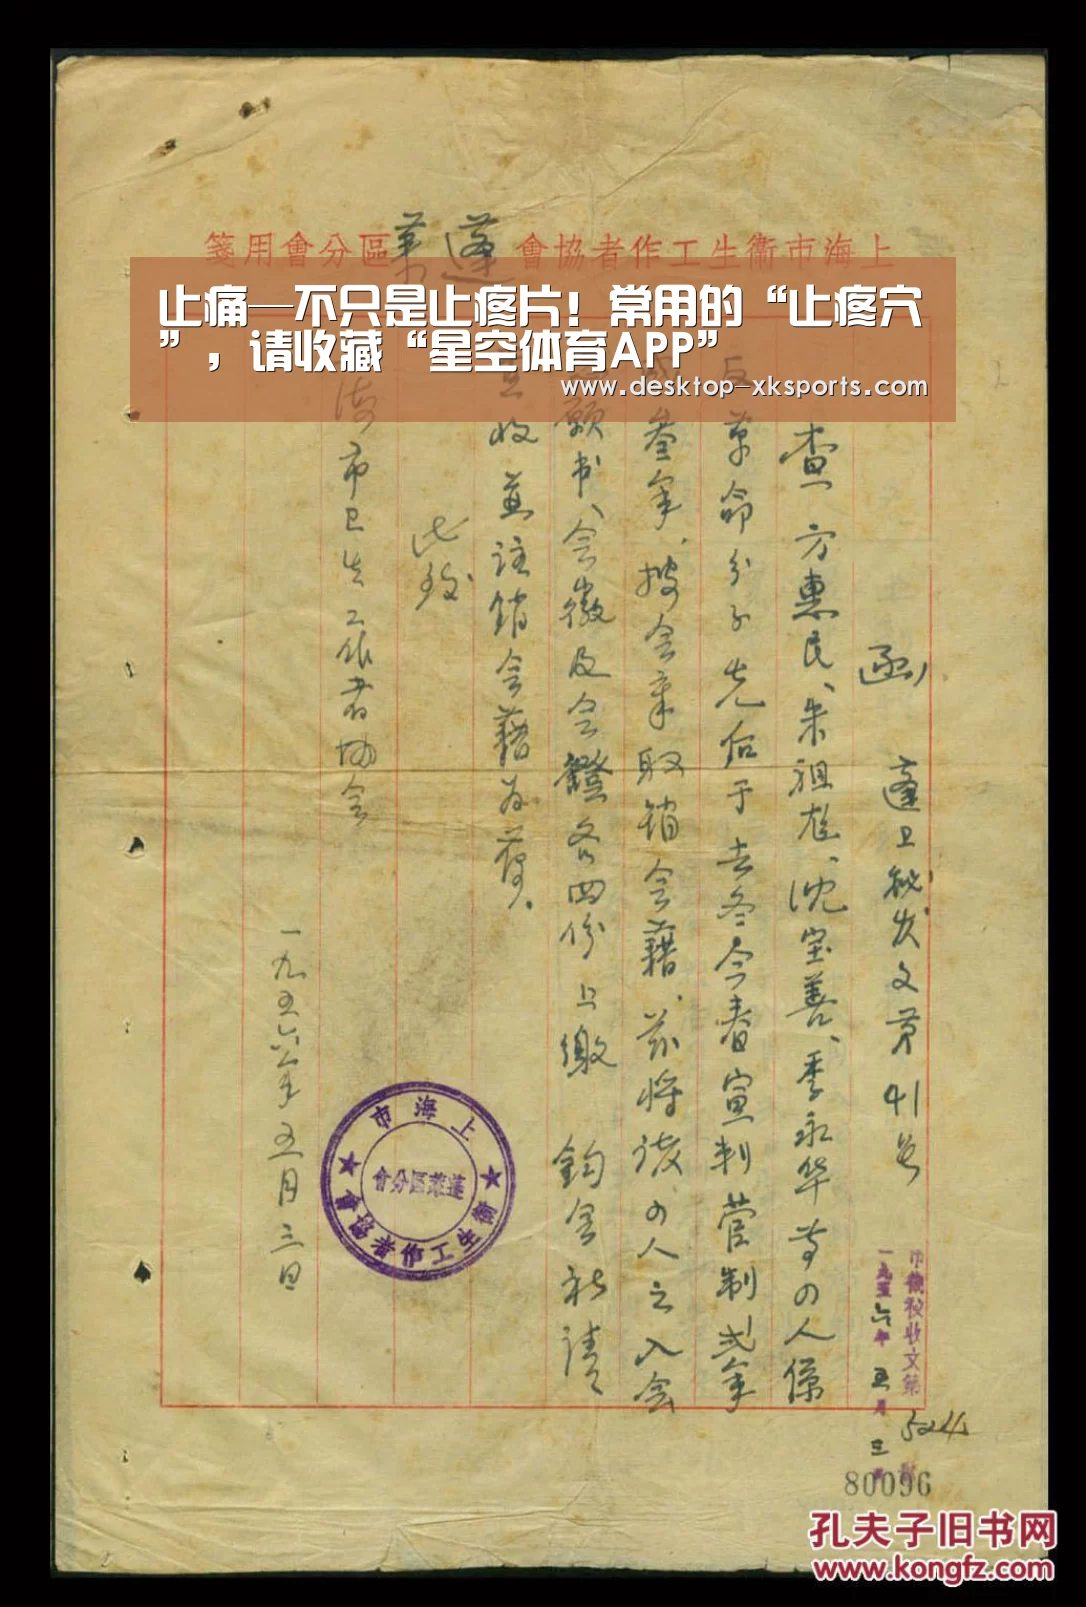 上海市衞生工作者協會蓬萊區分會用箋
止痛—不只是止疼片！常用的“止疼穴
”，请收藏“星空体育APP”
www.desktop-xksports.com
函 蓬卫秘发文第41号
查方惠民、朱祖尨、沈宝善、季永华等四人係
反革命分子先后于去冬今春宣判管制弍年
叁年、按会章取销会藉、兹将该四人之入会
願书、会徽及会證各四份上缴 鈞会衹请
收並註销会藉为荷。
此致
海市卫生工作者协会
一九五六年五月三日
上海市衞生工作者協會
蓬萊區分會
市衛秘收文第 5244 號
一九五六年五月三日
80096
孔夫子旧书网
www.kongfz.com